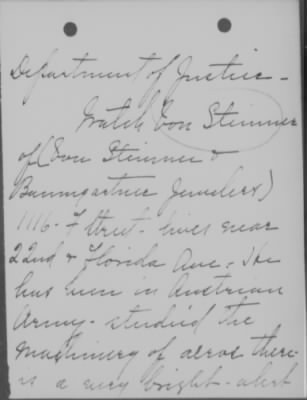 Department of Justice -
Watch Von Steinner
of (Von Steinner &
Baumgartner Jewelers)
1116 - F street - lives near
22nd & Florida Ave - He
has been in Austrian
Army - studied the
machinery of there
is a very bright - alert